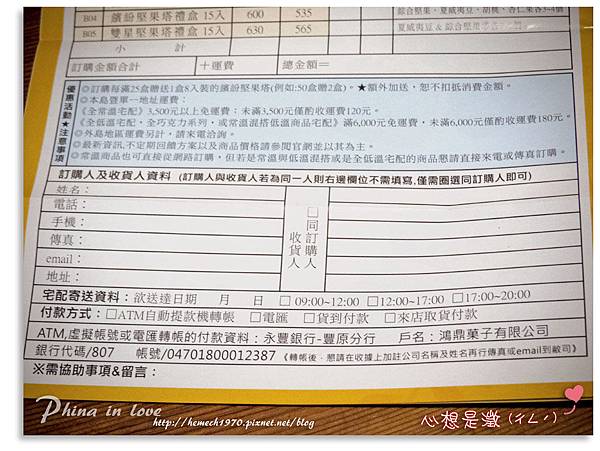 B04 繽紛堅果塔禮盒 15入 600 535 綜合堅果、夏威夷豆、胡桃、杏仁果各3-4個
B05 雙星堅果塔禮盒 15入 630 565 夏威夷豆 & 綜合堅果
小計
訂購金額合計 +運費 總金額=
優惠活動★注意事項
◎訂購每滿25盒贈送1盒8入裝的繽紛堅果塔(例如:50盒贈2盒)。★額外加送,恕不扣抵消費金額。
◎本島暨單一地址運費:
《全常溫宅配》3,500元以上免運費;未滿3,500元僅酌收運費120元。
《全低溫宅配,全巧克力系列,或常溫混搭低溫商品宅配》滿6,000元免運費,未滿6,000元僅酌收運費180元。
◎外島地區運費另計,請來電洽詢。
◎最新資訊,不定期回饋方案以及商品價格請參閱官網並以其為主。
◎常溫商品也可直接從網路訂購,但若是常溫與低溫混搭或是全低溫宅配的商品懇請直接來電或傳真訂購。
訂購人及收貨人資料 (訂購人與收貨人若為同一人則右邊欄位不需填寫,僅需圈選同訂購人即可)
姓名:
電話:
手機:
傳真:
email:
地址:
收貨人
□同訂購人
宅配寄送資料:欲送達日期 月 日 □09:00~12:00 □12:00~17:00 □17:00~20:00
付款方式:□ATM自動提款機轉帳 □電匯 □貨到付款 □來店取貨付款
ATM,虛擬帳號或電匯轉帳的付款資料:永豐銀行-豐原分行 戶名:鴻鼎菓子有限公司
銀行代碼/807 帳號/04701800012387 《轉帳後,懇請在收據上加註公司名稱及姓名再行傳真或email到敝司》
※需協助事項&留言:
Phina in love
http://hemech1970.pixnet.net/blog
心想是澂(ㄔㄥˊ)